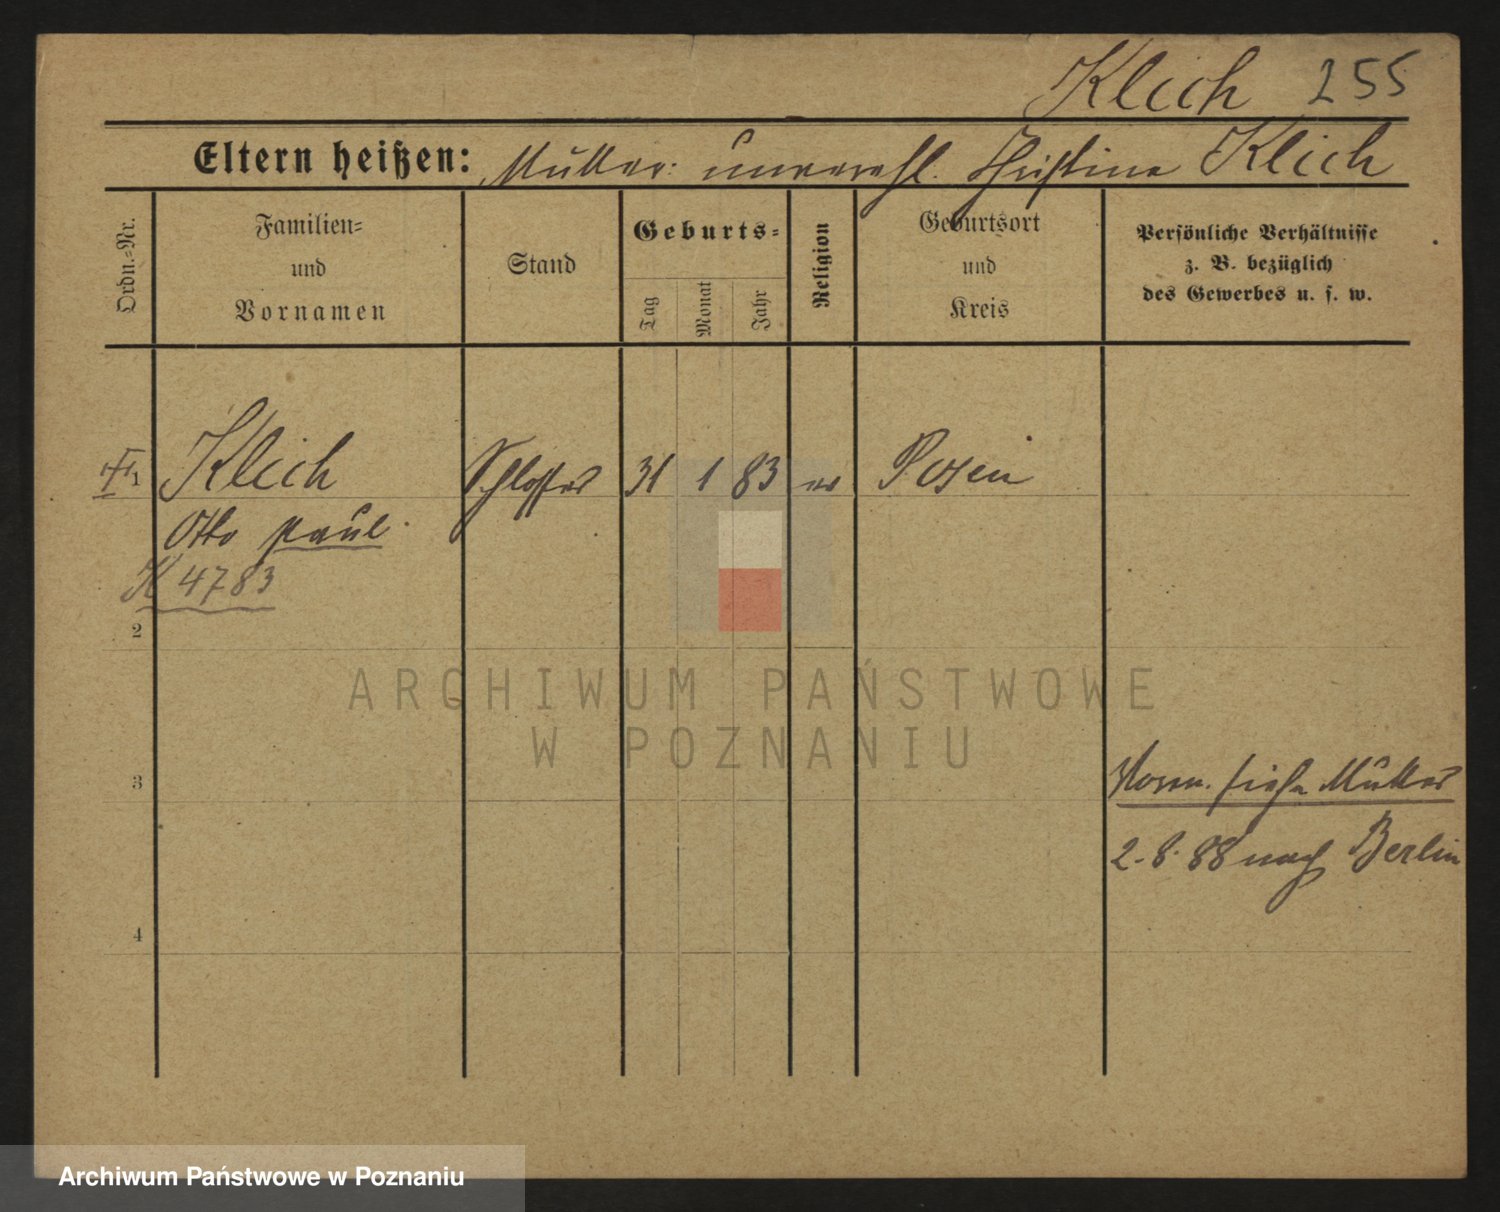 Klich 255
Eltern heißen: Mutter: unverehl. Christine Klich
Ordn.-Nr.
Familien-
und
Vornamen
Stand
Geburts-
Tag
Monat
Jahr
Religion
Geburtsort
und
Kreis
Persönliche Verhältnisse
z. B. bezüglich
des Gewerbes u. s. w.
1 Klich Schlosser 31 1 83 ev Posen
Otto Paul
K 4783
2
ARCHIWUM PAŃSTWOWE
W POZNANIU
3 siehe Mutter
2. 8. 88 nach Berlin
4
Archiwum Państwowe w Poznaniu